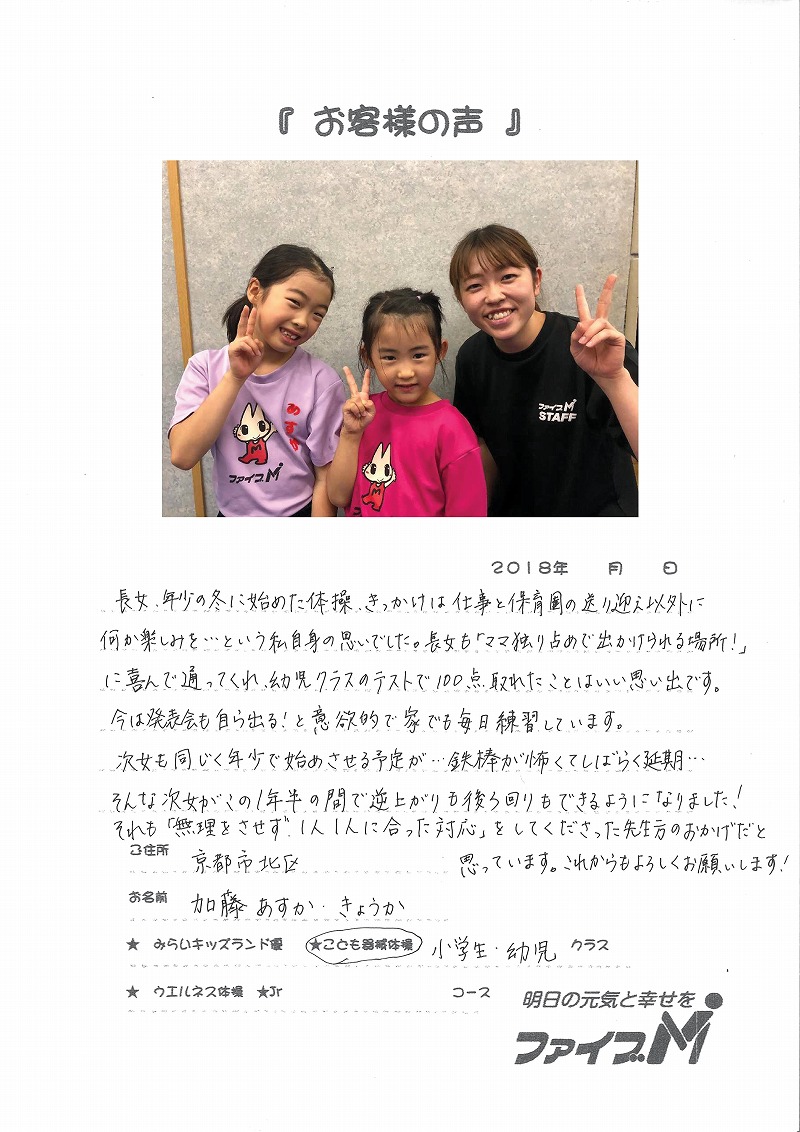 『 お客様の声 』
あすか
ファイブM
ファイブM
STAFF
2018年　月　日
長女、年少の冬に始めた体操、きっかけは仕事と保育園の送り迎え以外に
何か楽しみを…という私自身の思いでした。長女も「ママ独り占めで出かけられる場所！」
に喜んで通ってくれ、幼児クラスのテストで100点取れたことはいい思い出です。
今は発表会も自ら出る！と意欲的で家でも毎日練習しています。
次女も同じく年少で始めさせる予定が…鉄棒が怖くてしばらく延期…
そんな次女がこの1年半の間で逆上がりも後ろ回りもできるようになりました！
それも「無理をさせず、1人1人に合った対応」をしてくださった先生方のおかげだと
思っています。これからもよろしくお願いします！
ご住所　京都市北区
お名前　加藤 あすか・きょうか
★ みらいキッズランド優　★こども器械体操　小学生・幼児　クラス
★ ウエルネス体操　★Jr　コース
明日の元気と幸せを
ファイブM